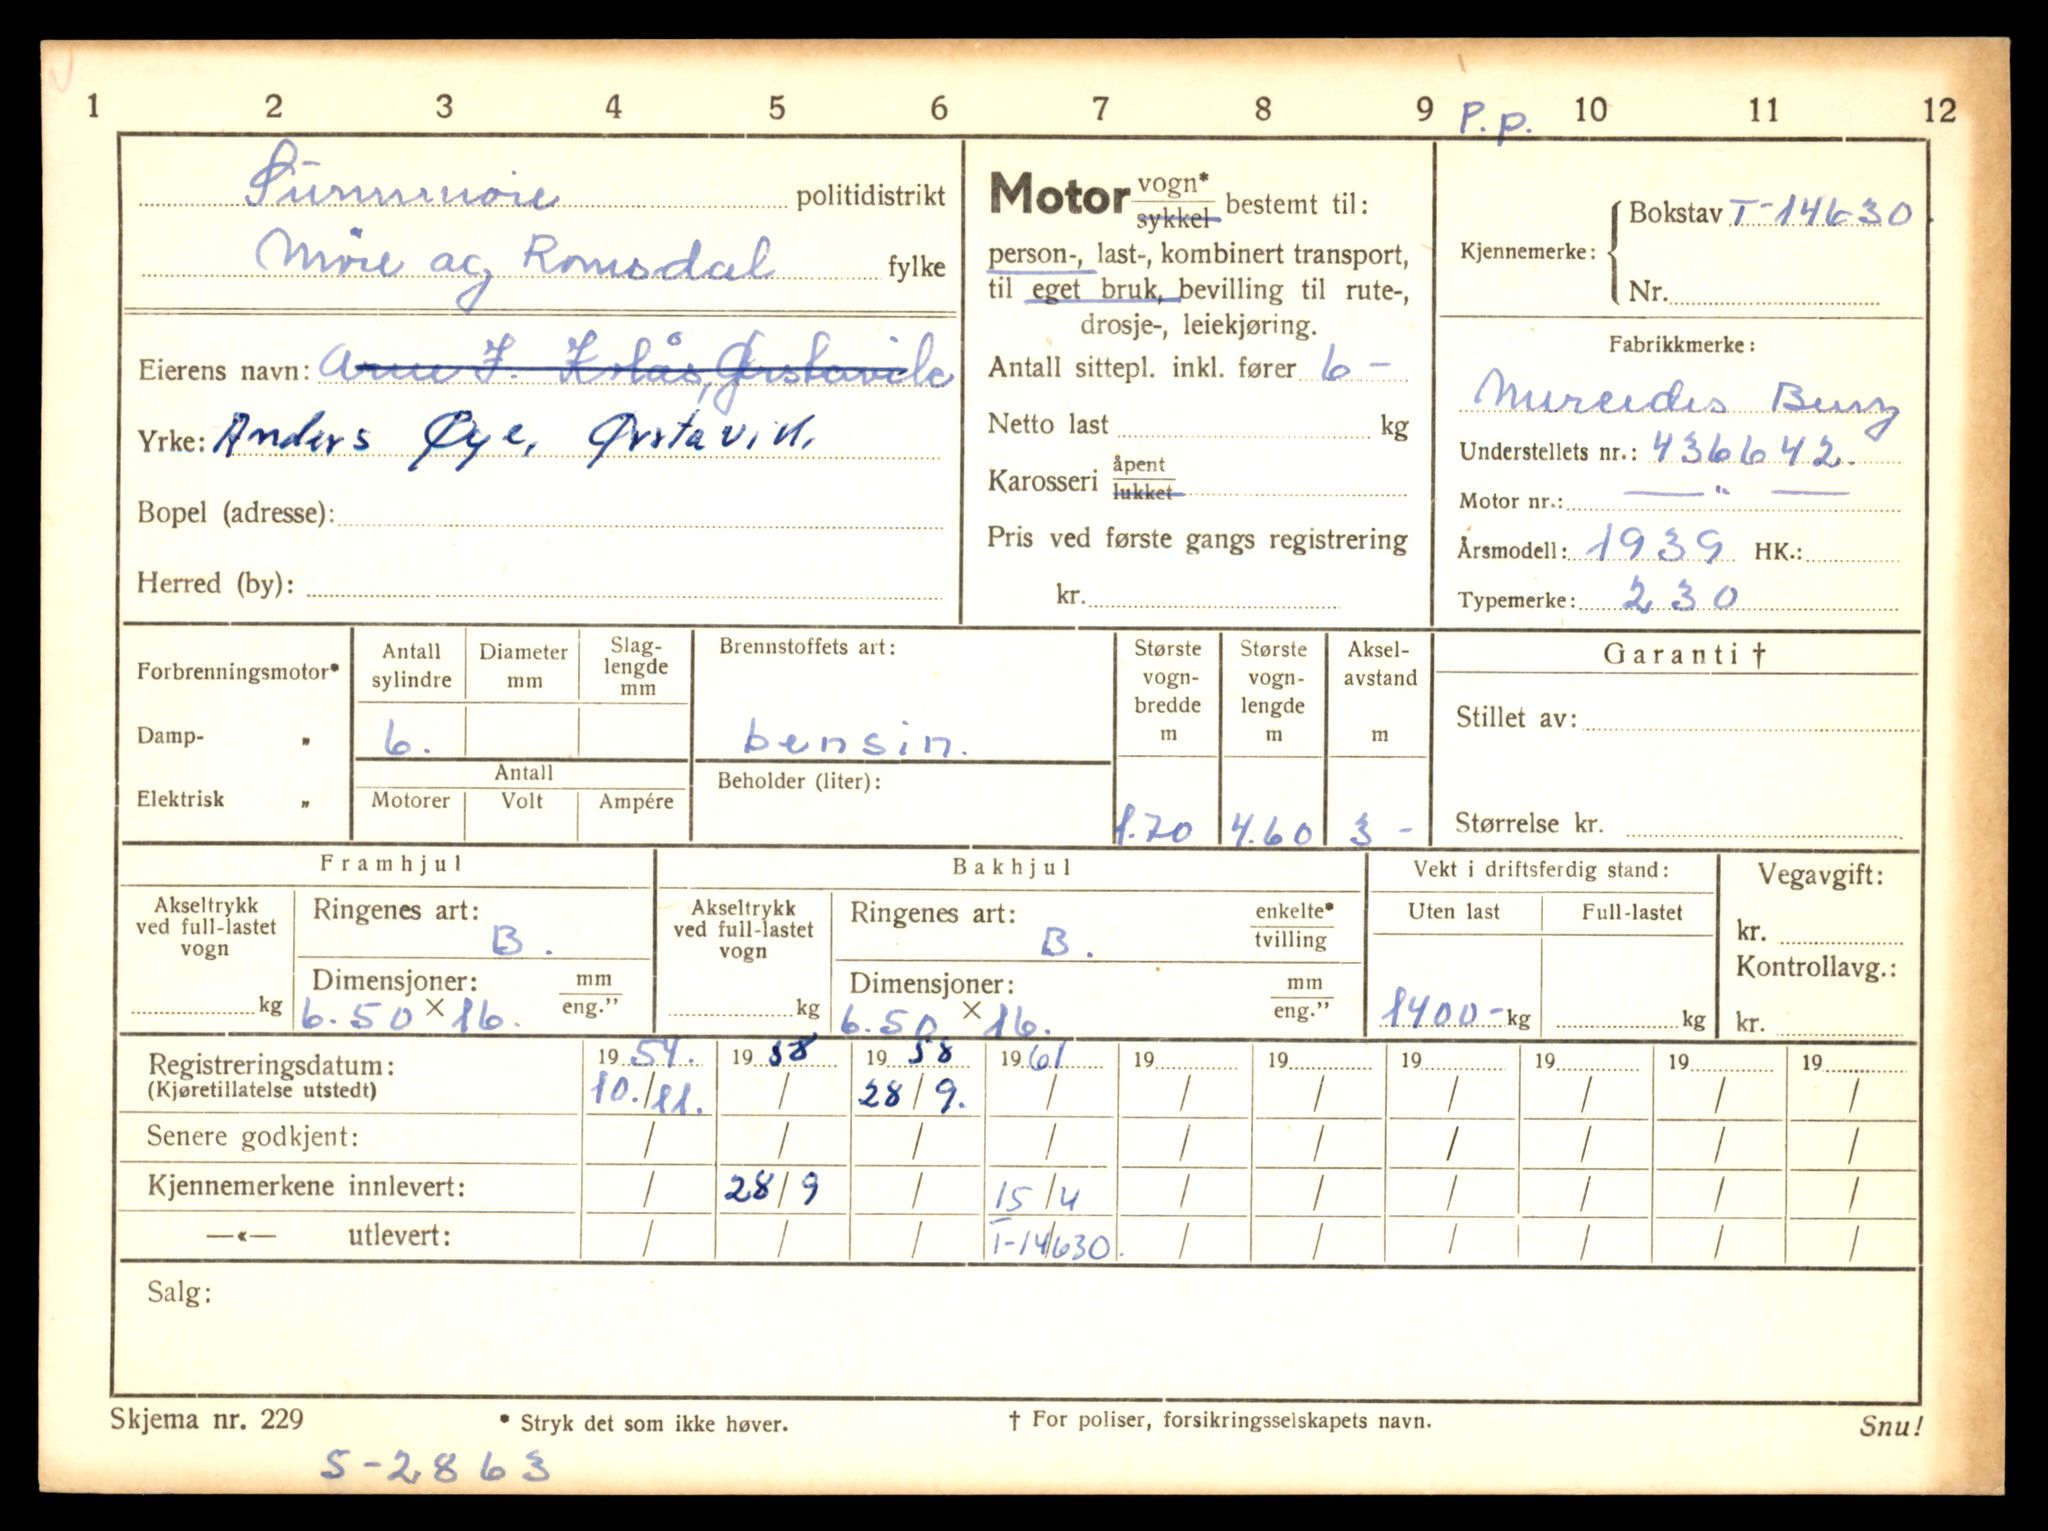 1 2 3 4 5 6 7 8 9 P.p. 10 11 12
Sunnmøre politidistrikt
Møre og Romsdal fylke
Eierens navn: Arne J. Ørstavik
Yrke: Anders Øye, Ørstavik.
Bopel (adresse):
Herred (by):
Motor vogn* / sykkel bestemt til:
person-, last-, kombinert transport,
til eget bruk, bevilling til rute-,
drosje-, leiekjøring.
Antall sittepl. inkl. fører 6 -
Netto last kg
Karosseri åpent / lukket
Pris ved første gangs registrering
kr.
Kjennemerke: Bokstav T-14630
Nr.
Fabrikkmerke:
Mercedes Benz
Understellets nr.: 436642.
Motor nr.: — " —
Årsmodell: 1939 HK.:
Typemerke: 230
Forbrenningsmotor*
Damp- „
Elektrisk „
Antall sylindre
Diameter mm
Slag-
lengde
mm
6.
Antall
Motorer Volt Ampére
Brennstoffets art:
bensin.
Beholder (liter):
Største
vogn-
bredde
m
1.70
Største
vogn-
lengde
m
4.60
Aksel-
avstand
m
3 -
Garanti †
Stillet av:
Størrelse kr.
Framhjul
Akseltrykk
ved full-lastet
vogn
kg
Ringenes art:
B.
Dimensjoner: mm / eng."
6.50 × 16.
Bakhjul
Akseltrykk
ved full-lastet
vogn
kg
Ringenes art: enkelte* / tvilling
B.
Dimensjoner: mm / eng."
6.50 × 16.
Vekt i driftsferdig stand:
Uten last Full-lastet
1400- kg kg
Vegavgift:
kr.
Kontrollavg.:
kr.
Registreringsdatum: 1954. 1958 1958 1961 19 19 19 19 19 19
(Kjøretillatelse utstedt) 10./11. / 28/9. / / / / / / /
Senere godkjent: / / / / / / / / / /
Kjennemerkene innlevert: / 28/9 / 15/4 / / / / / /
—«— utlevert: / / / T-14630. / / / / / /
Salg:
Skjema nr. 229 * Stryk det som ikke høver. † For poliser, forsikringsselskapets navn. Snu!
S-2863